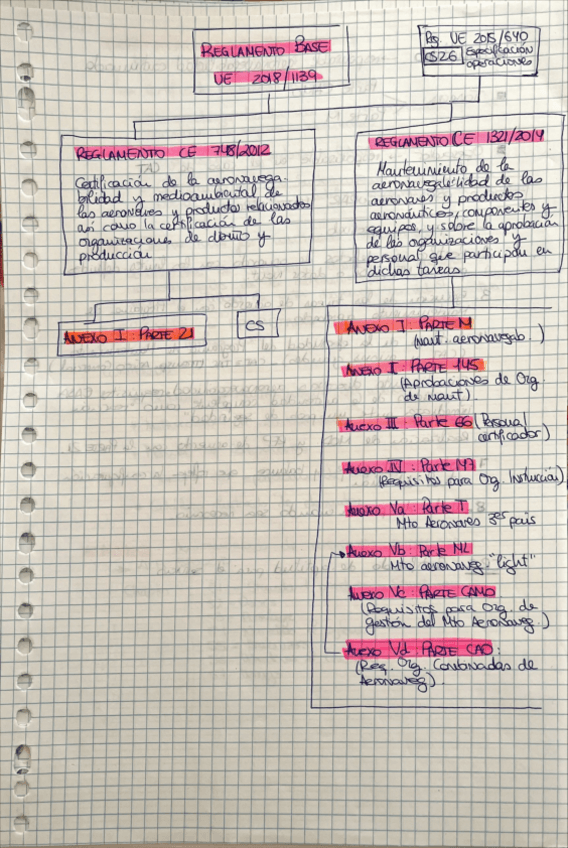 REGLAMENTO BASE
UE 2018/1139
Reg. UE 2015/640
CS26 Especificación
operaciones
REGLAMENTO CE 748/2012
Certificación de la aeronavega
bilidad y medioambiental de
las aeronaves y productos relacionados
así como la certificación de las
organizaciones de diseño y
producción
REGLAMENTO CE 1321/2014
Mantenimiento de la
aeronavegabilidad de las
aeronaves y productos
aeronáuticos, componentes y
equipos, y sobre la aprobación
de las organizaciones y
personal que participan en
dichas tareas
ANEXO I: PARTE 21
CS
ANEXO I: PARTE M
(Mant. aeronavegab.)
ANEXO I: PARTE 145
(Aprobaciones de Org.
de Mant)
Anexo III: Parte 66 (Personal
certificador)
Anexo IV: Parte 147
(Requisitos para Org. Instrucción)
Anexo Va: Parte T
Mto Aeronaves 3er país
Anexo Vb: Parte ML
Mto aeronaveg. "light"
Anexo Vc: PARTE CAMO
(Requisitos para Org. de
gestión del Mto AeroNaveg.)
Anexo Vd: PARTE CAO:
(Req. Org. Combinadas de
Aeronaveg).